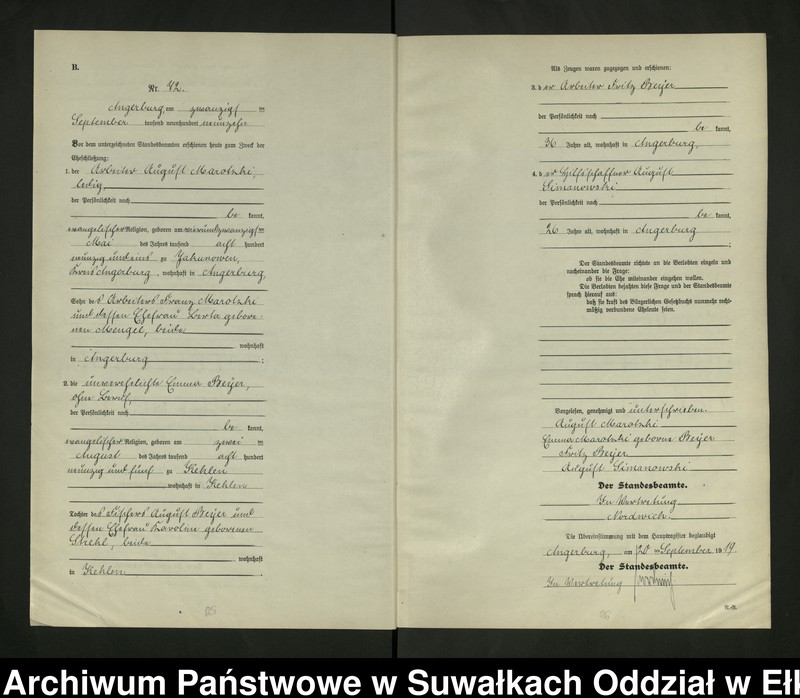 B.
Nr. 72.
Angerburg, am zwanzigsten
September tausend neunhundert neunzehn
Vor dem unterzeichneten Standesbeamten erschienen heute zum Zweck der
Eheschließung:
1. der Arbeiter August Marotzki,
ledig,
der Persönlichkeit nach
be kannt,
evangelischer Religion, geboren am vierundzwanzigsten
Mai des Jahres tausend acht hundert
neunzig und eins zu Jakunowen,
Kreis Angerburg, wohnhaft in Angerburg,
Sohn des Arbeiters Franz Marotzki
und dessen Ehefrau Berta gebore-
nen Mengel, beide
wohnhaft
in Angerburg ;
2. die unverehelichte Emma Beyer,
ohne Beruf,
der Persönlichkeit nach
be kannt,
evangelischer Religion, geboren am zwei ten
August des Jahres tausend acht hundert
neunzig und fünf zu Kehlen
, wohnhaft in Kehlen
Tochter des Fischers August Beyer und
dessen Ehefrau Karoline geborenen
Strehl, beide
, wohnhaft
in Kehlen .
Als Zeugen waren zugezogen und erschienen:
3. der Arbeiter Fritz Beyer
der Persönlichkeit nach
be kannt,
36 Jahre alt, wohnhaft in Angerburg,
4. der Hilfsschaffner August
Simanowski
der Persönlichkeit nach
be kannt,
26 Jahre alt, wohnhaft in Angerburg
;
Der Standesbeamte richtete an die Verlobten einzeln und
nacheinander die Frage:
ob sie die Ehe miteinander eingehen wollen.
Die Verlobten bejahten diese Frage und der Standesbeamte
sprach hierauf aus:
daß sie kraft des Bürgerlichen Gesetzbuchs nunmehr recht-
mäßig verbundene Eheleute seien.
Vorgelesen, genehmigt und unterschrieben.
August Marotzki
Emma Marotzki geborene Beyer
Fritz Beyer
August Simanowski
Der Standesbeamte.
In Vertretung
Nordwich.
Die Übereinstimmung mit dem Hauptregister beglaubigt
Angerburg, am 20 ten September 1919.
Der Standesbeamte.
In Vertretung
Archiwum Państwowe w Suwałkach Oddział w Eł